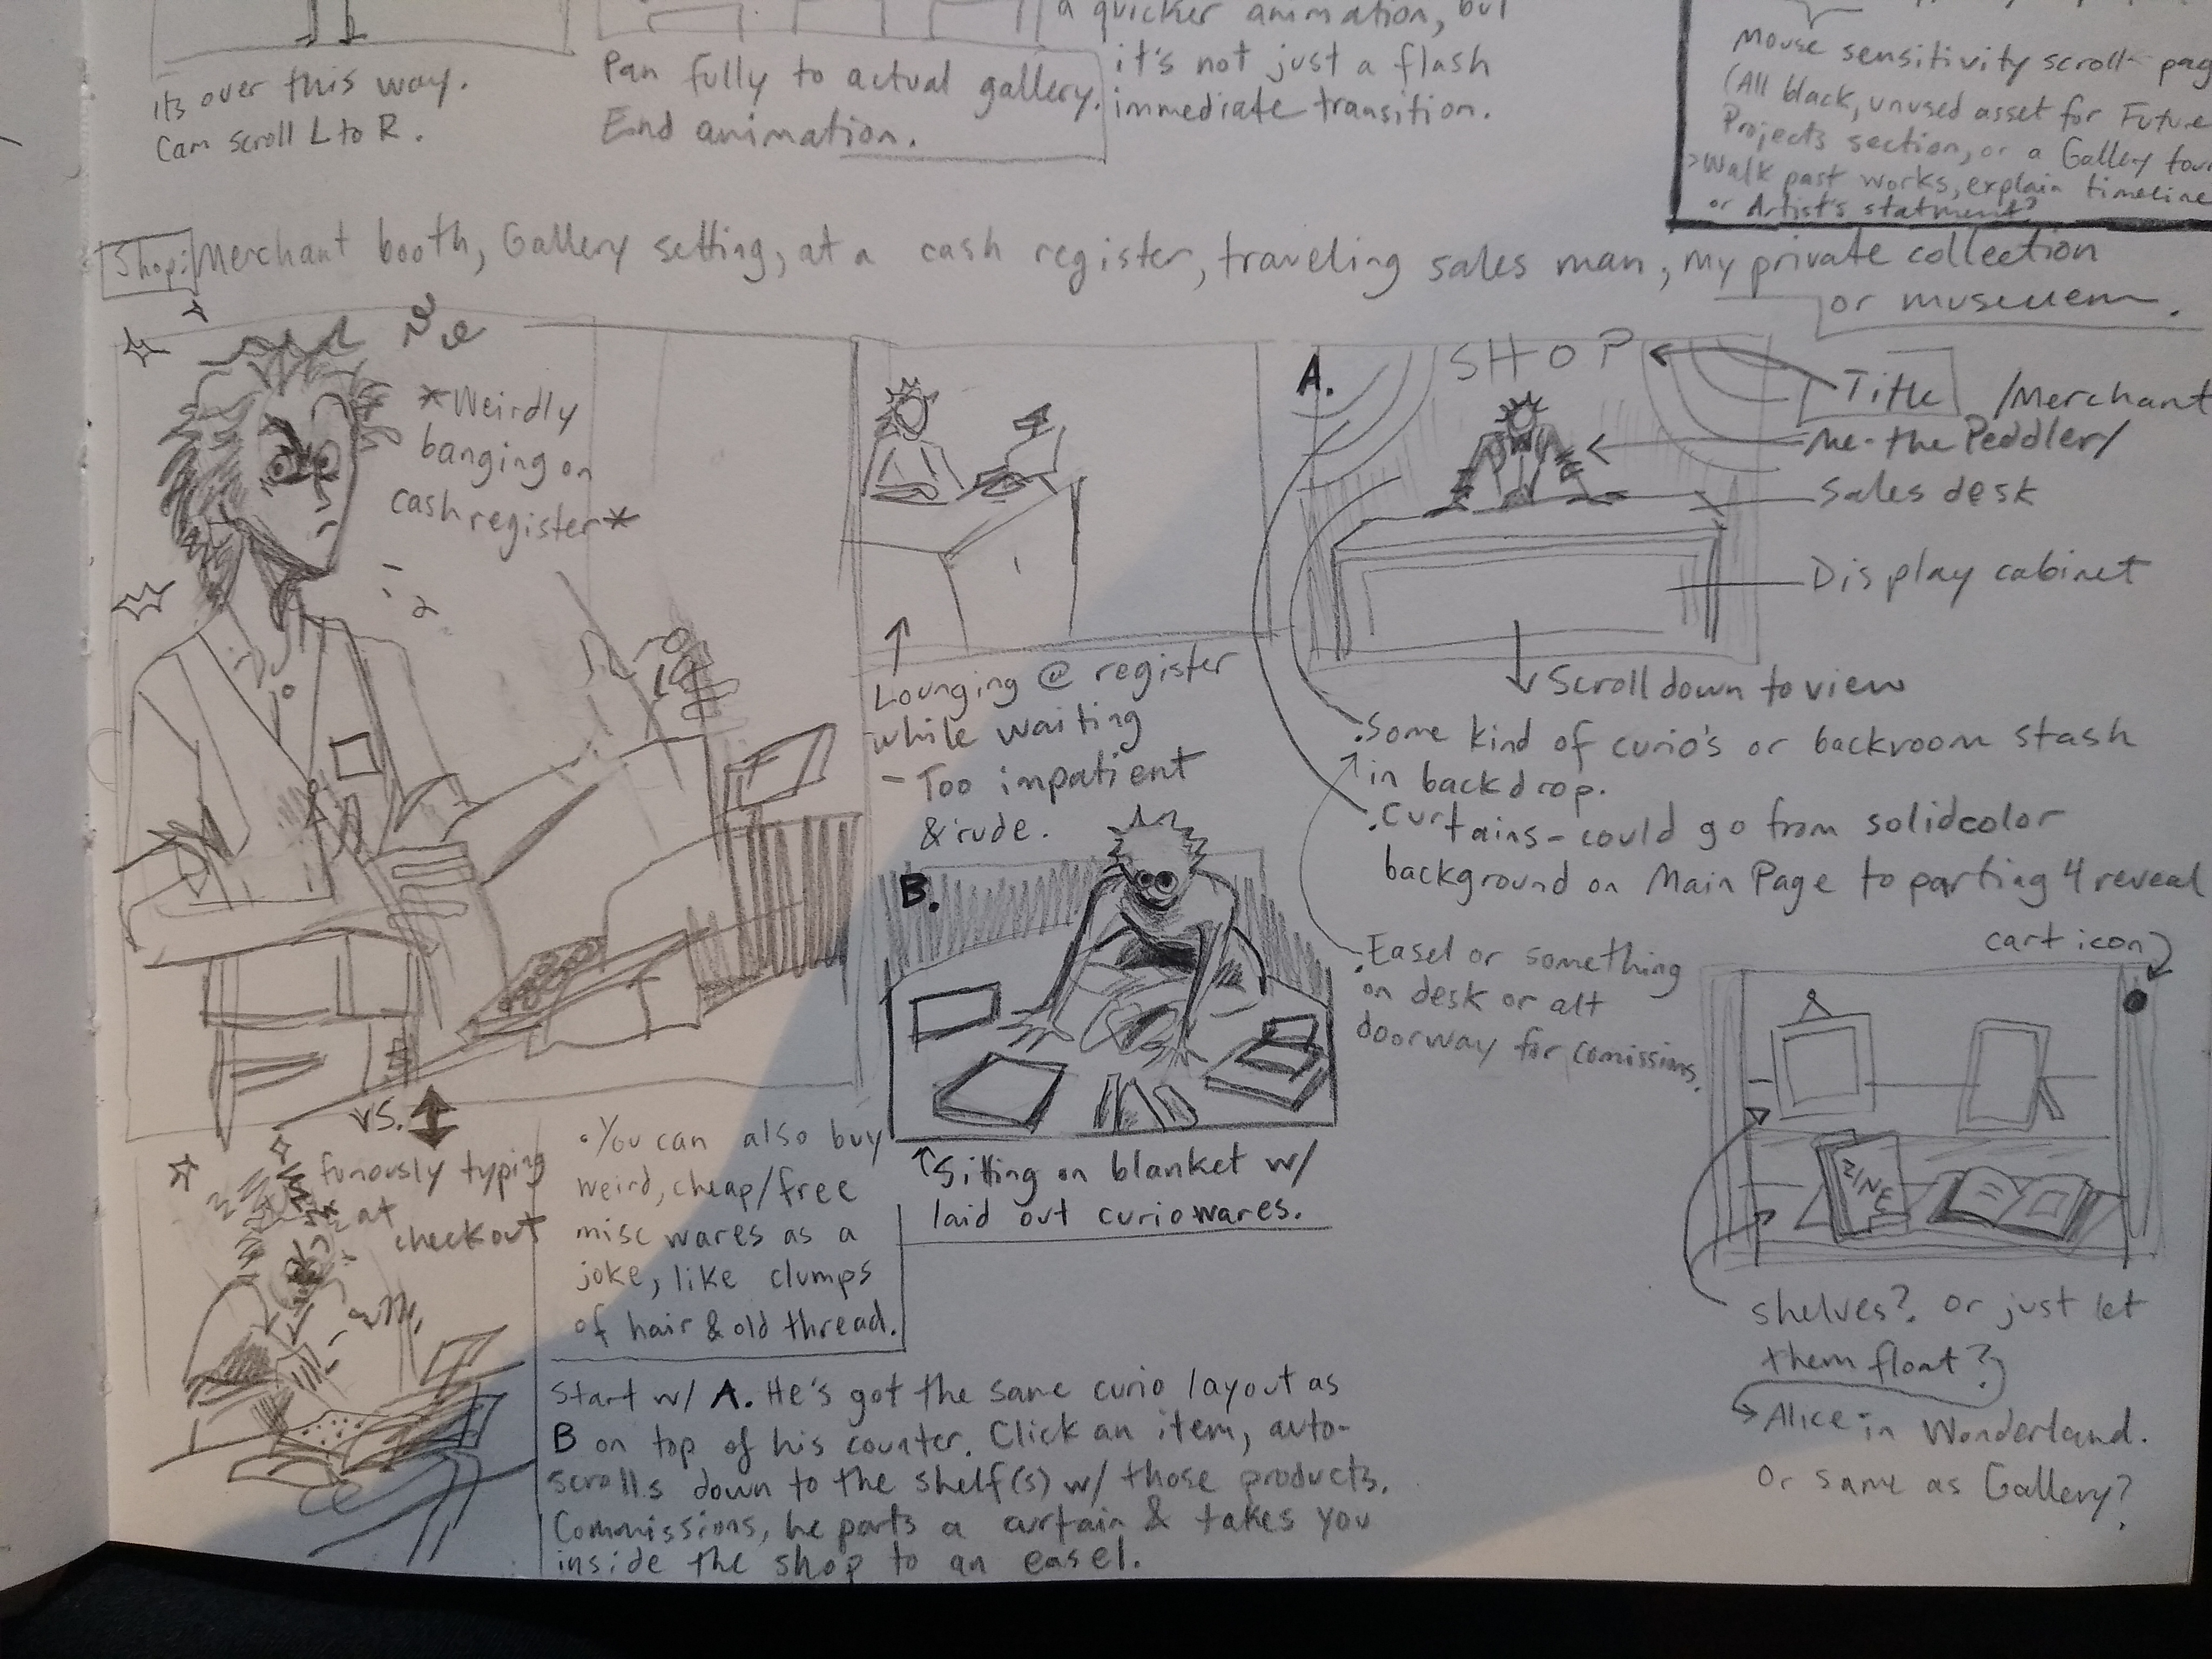 its over this way.
Can scroll L to R.
Pan fully to actual gallery.
End animation.
a quicker animation, but
it's not just a flash
immediate transition.
Mouse sensitivity scroll pag
(All black, unused asset for Future
Projects section, or a Gallery tour
>Walk past works, explain timeline
or Artist's statment?
Shop: Merchant booth, Gallery setting, at a cash register, traveling sales man, my private collection
or museuem.
*Weirdly
banging on
cash register*
Lounging @ register
while waiting
- Too impatient
& rude.
A.
SHOP
Title /Merchant
Me - the Peddler/
Sales desk
Display cabinet
Scroll down to view
. Some kind of curio's or backroom stash
in backdrop.
. Curtains - could go from solid color
background on Main Page to parting 4 reveal
. Easel or something
on desk or alt
doorway for comissions.
B.
Sitting on blanket w/
laid out curio wares.
cart icon
ZINE
shelves? or just let
them float?
Alice in Wonderland.
Or same as Gallery?
vs.
furiously typing
at
checkout
• You can also buy
weird, cheap/free
misc wares as a
joke, like clumps
of hair & old thread.
Start w/ A. He's got the same curio layout as
B on top of his counter. Click an item, auto-
scrolls down to the shelf(s) w/ those products.
Commissions, he parts a curtain & takes you
inside the shop to an easel.